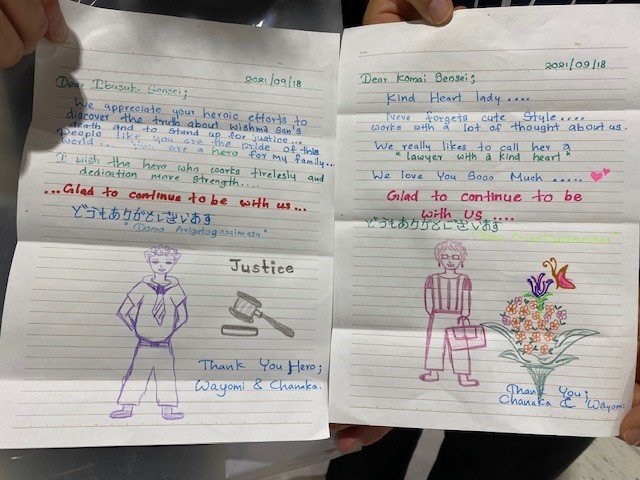 2021/09/18
Dear Ibusuki Sensei;
We appreciate your heroic efforts to
discover the truth about Wishma San's
death and to stand up for justice...
People like you are the pride of this
world.... You are a hero for my family...
I wish the hero who works tirelesly and
dedication more strength....
...Glad to continue to be with us...
どうもありがとございます
"Domo Arigatogosaimasu"
Justice
Thank You Hero;
Wayomi & Chanaka.
Date
No.
2021/09/18
Dear Komai Sensei;
Kind Heart lady....
Neve forgets cute Style....
works with a lot of thought about us.
We really likes to call her a
"lawyer with a kind heart"
We Love You Sooo Much .....
Glad to continue to be
with us ....
どうもありがとございます
Thank You;
Chanaka & Wayomi